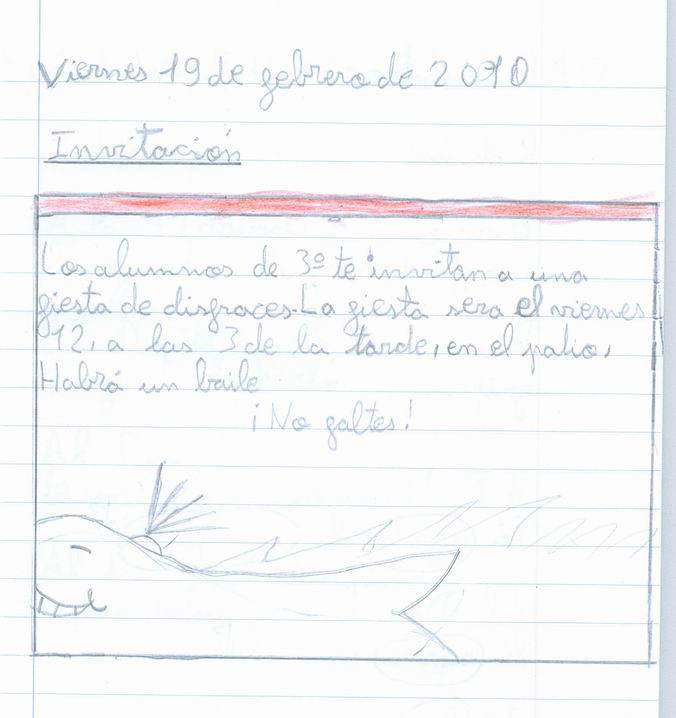 Viernes 19 de febrero de 2010
Invitación
Los alumnos de 3º te invitan a una
fiesta de disfraces. La fiesta sera el viernes
12, a las 3 de la tarde, en el patio,
Habrá un baile
¡No faltes!